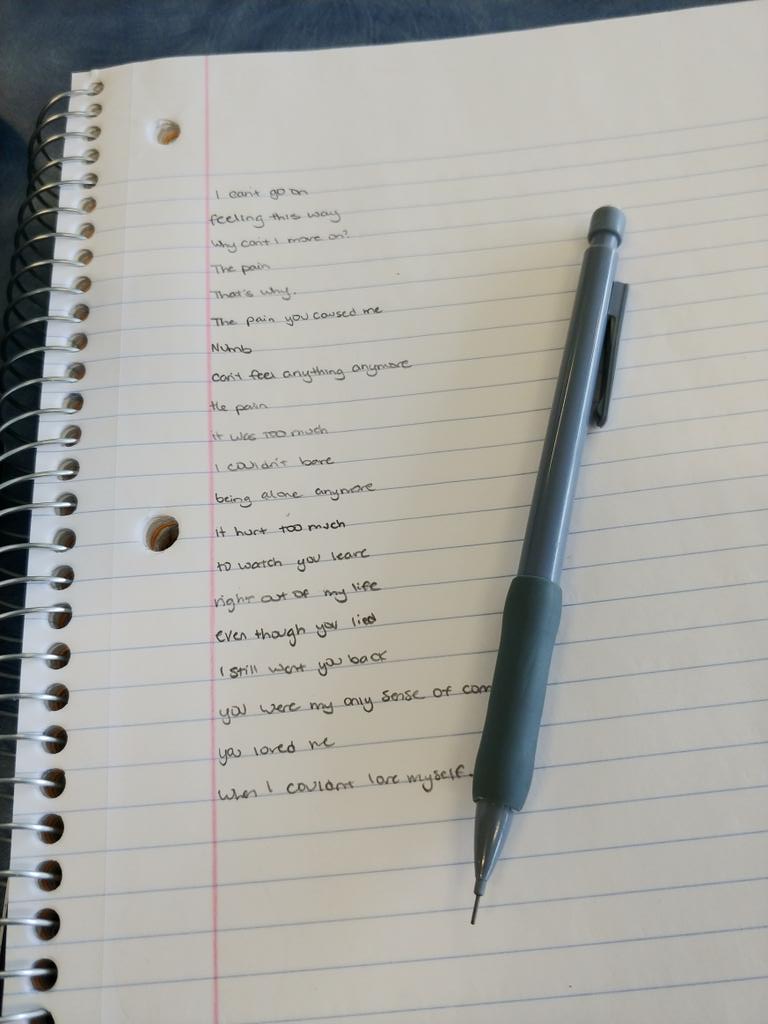 I can't go on
feeling this way
Why can't I move on?
The pain
That's why.
The pain you caused me
Numb
can't feel anything anymore
the pain
it was too much
I couldn't bare
being alone anymore
it hurt too much
to watch you leave
right out of my life
even though you lied
I still want you back
you were my only sense of com
you loved me
when I couldn't love myself.